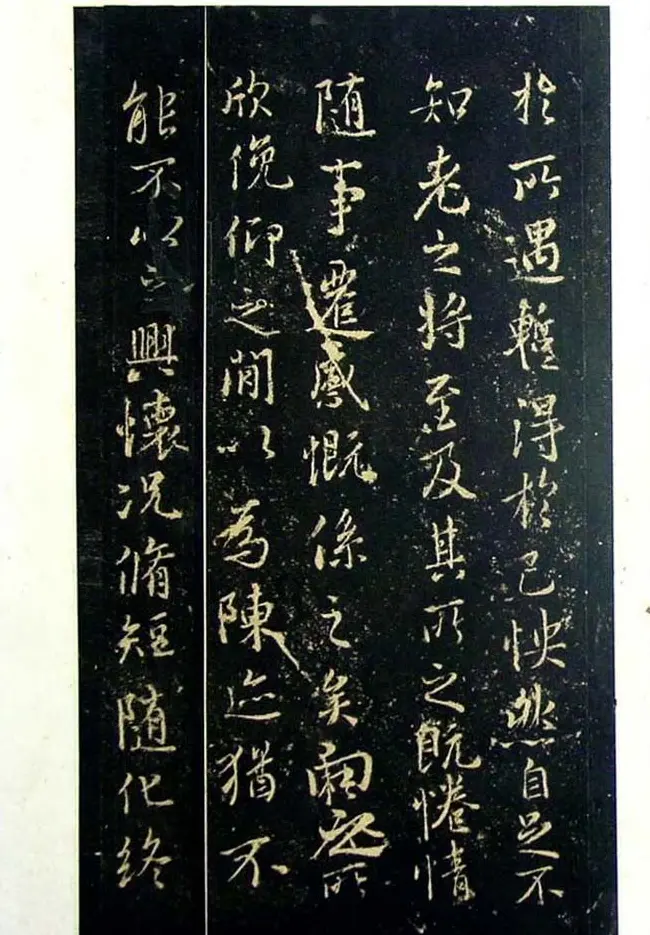 於所遇暫得於己怏然自足不
知老之將至及其所之既惓情
随事遷感慨係之矣向之所
欣俛仰之閒以為陳迹猶不
能不以之興懷况脩短随化終